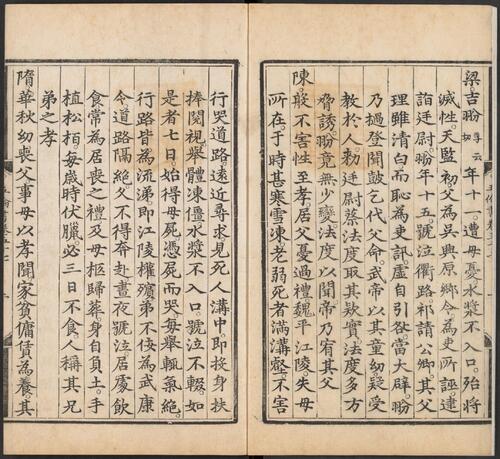 梁吉昐孚云切年十。遭母憂。水漿不入口。殆將
滅性。天監初。父為吳興原鄉令。為吏所誣。逮
詣廷尉。昐年十五。號泣衢路。祈請公卿。其父
理雖清白。而恥為吏訊。虛自引咎。當大辟。昐
乃撾登聞鼓。乞代父命。武帝以其童幼。疑受
教於人。勑廷尉蔡法度取其欵實。法度多方
脅誘。昐竟無少變。法度以聞。帝乃宥其父
陳殷不害性至孝。居父憂過禮。魏平江陵。失母
所在。于時甚寒。雪凍。老弱死者滿溝壑。不害
行哭道路。遠近尋求。見死人溝中。即投身扶
捧閱視。舉體凍僵。水漿不入口。號泣不輟。如
是者七日。始得母屍。憑屍而哭。每舉輒氣絕。
行路皆為流涕。即江陵權殯。弟不佞為武康
令。道路隔絕。久不得奔赴。晝夜號泣。居處飲
食。常為居喪之禮。及母柩歸葬。身自負土。手
植松柏。每歲時伏臘。必三日不食。人稱其兄
弟之孝
隋華秋幼喪父。事母以孝聞。家貧。傭賃為養。其